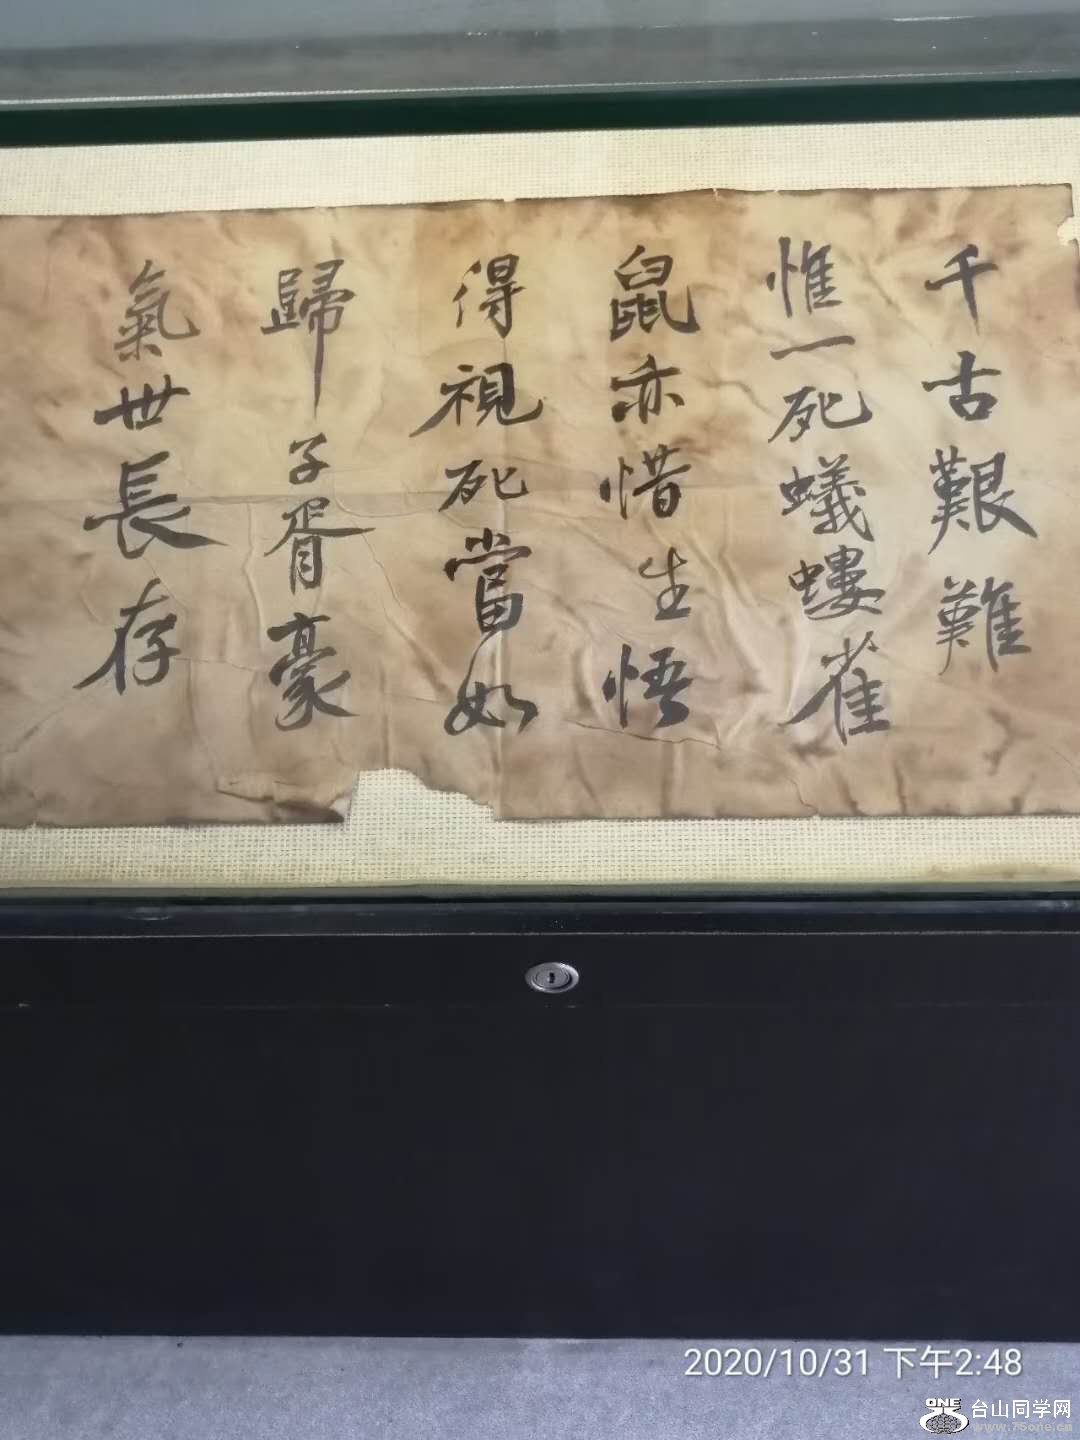 千古艱難
惟一死蟻螻雀
鼠亦惜生悟
得視死當如
歸子胥豪
氣世長存
2020/10/31 下午2:48
ONE
台山同学网
www.75one.cn